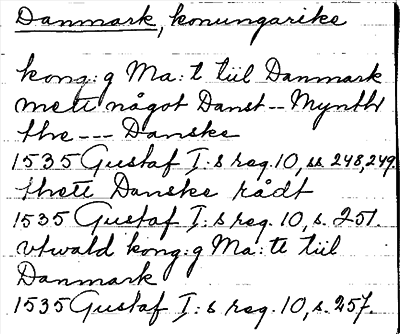 Danmark, konungarike
kong: g Ma: tt till Danmark
mett något Danst -- Mynthr
the --- Danske
1535 Gustaf I: s reg. 10, ss 248, 249.
thett Danske rådt
1535 Gustaf I: s reg. 10, s. 251.
vtwald kong: g Ma: tt till
Danmark
1535 Gustaf I: s reg. 10, s. 257.